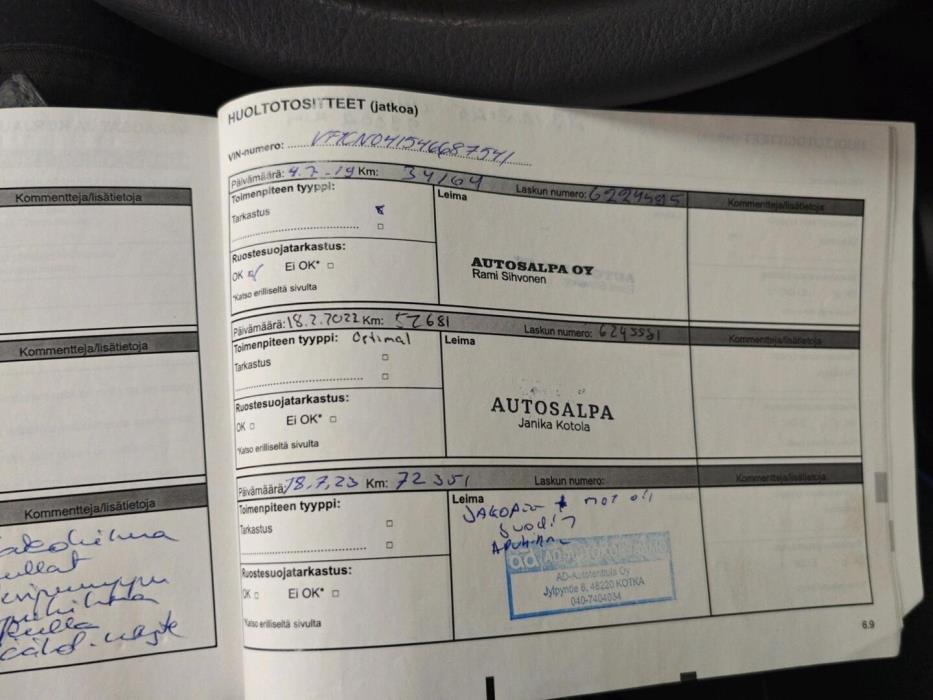 Kommentteja/lisätietoja
Kommentteja/lisätietoja
Kommentteja/lisätietoja
HUOLTOTOSITTEET (jatkoa)
VIN-numero:
Päivämäärä: 4.7-19 Km: 34164 Laskun numero: Kommentteja/lisätietoja
Toimenpiteen tyyppi: Leima
Tarkastus
Ruostesuojatarkastus:
OK Ei OK*
*Katso erilliseltä sivulta
AUTOSALPA OY
Rami Sihvonen
Päivämäärä: 18.2.2022 Km: 52681 Laskun numero: Kommentteja/lisätietoja
Toimenpiteen tyyppi: Optimal Leima
Tarkastus
Ruostesuojatarkastus:
OK Ei OK*
*Katso erilliseltä sivulta
AUTOSALPA
Janika Kotola
Päivämäärä: 18.7.23 Km: 72351 Laskun numero: Kommentteja/lisätietoja
Toimenpiteen tyyppi: Leima
Tarkastus
Ruostesuojatarkastus:
OK Ei OK*
*Katso erilliseltä sivulta
AD-Autotenttula Oy
Jylpyntie 6, 48220 KOTKA
040-7404034
6.9